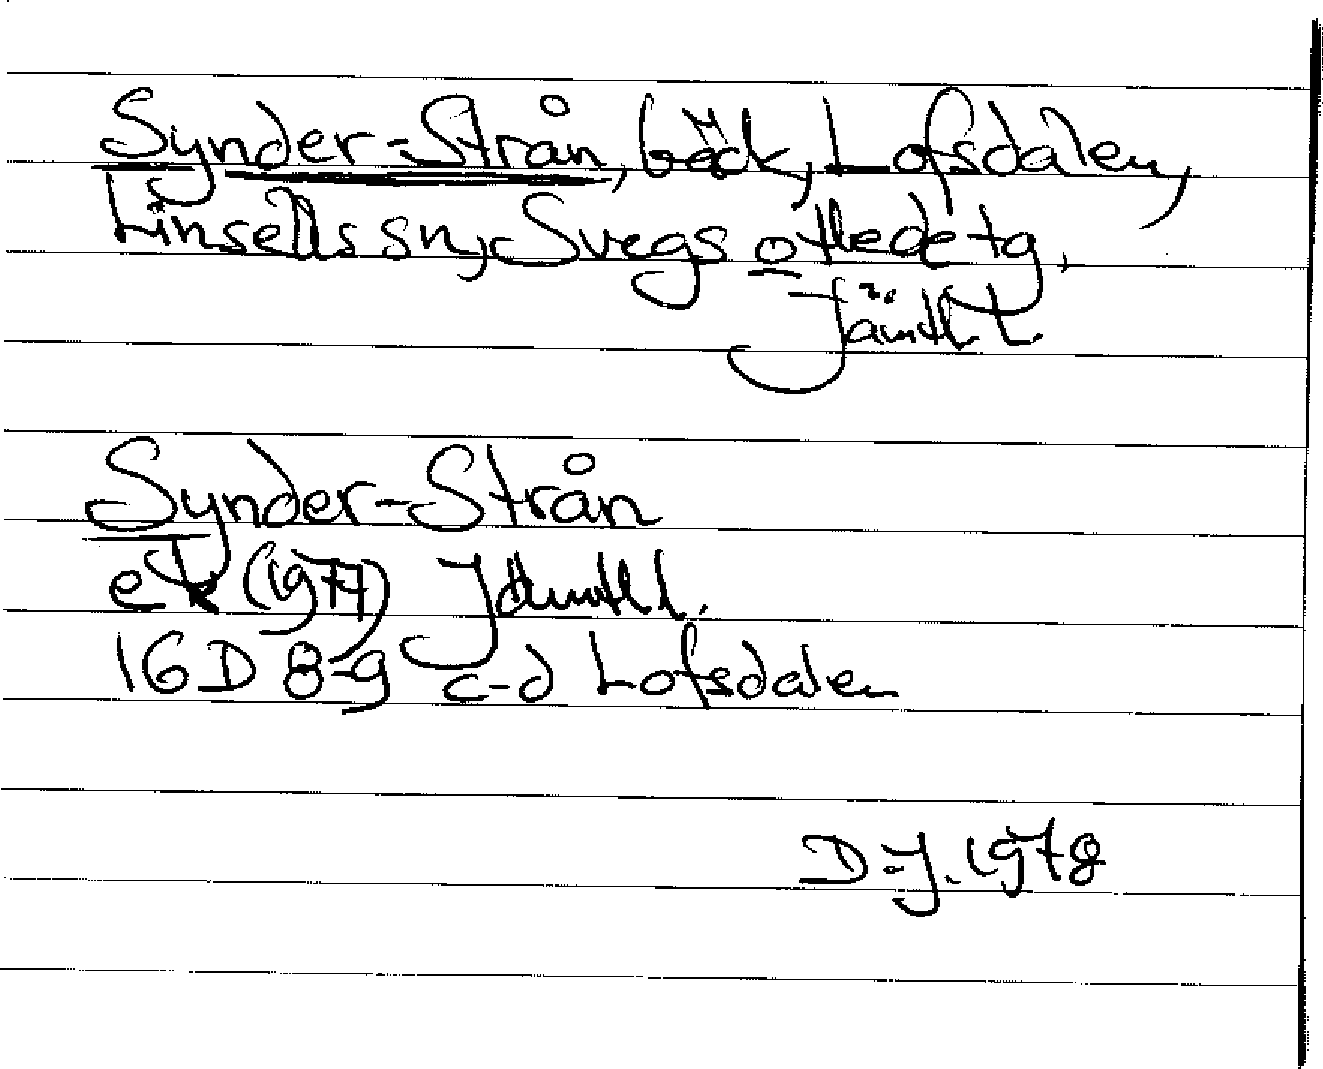 Synder-Strån, bäck, Lofsdalen,
Linsells sn, Svegs o Hede tg,
Jämtl l.
Synder-Strån
ek (1977) Jämtl l.
16 D 8-9 c-d Lofsdalen
D-J. 1978